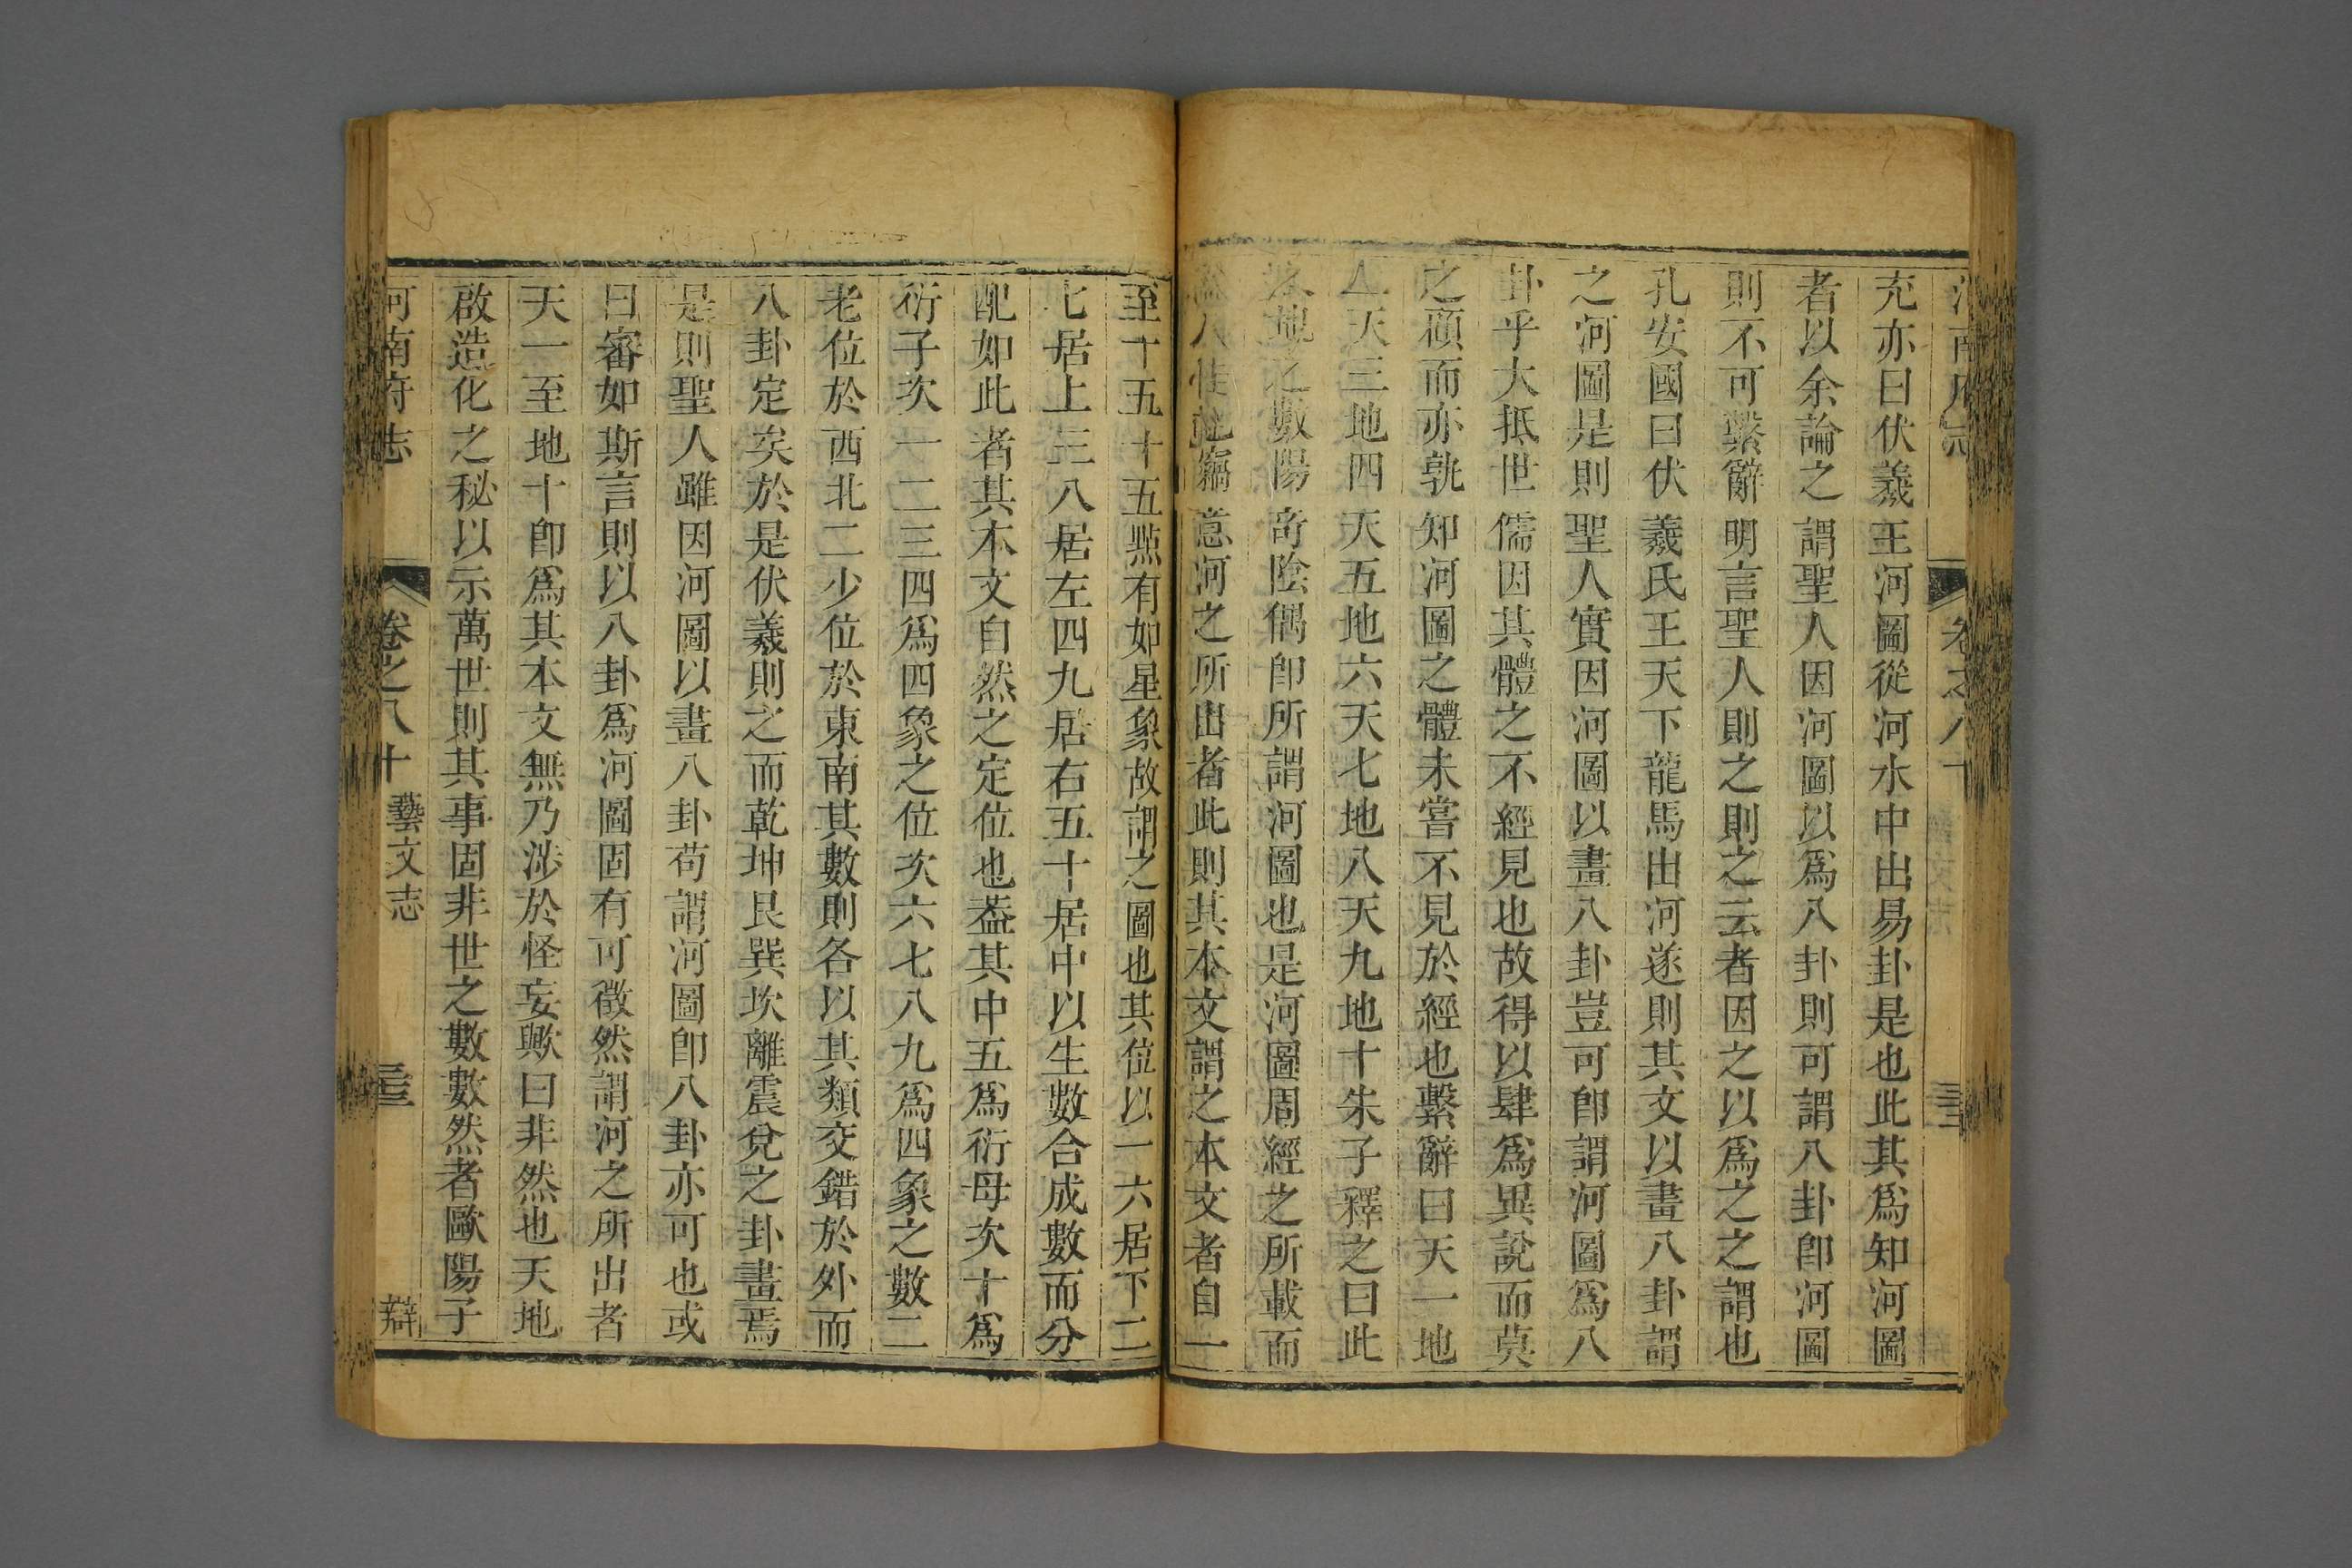 充亦曰伏羲王河圖從河水中出易卦是也此其爲知河圖
者以余論之謂聖人因河圖以爲八卦則可謂八卦卽河圖
則不可繫辭明言聖人則之則之云者因之以爲之之謂也
孔安國曰伏羲氏王天下龍馬出河遂則其文以畫八卦謂
之河圖是則聖人實因河圖以畫八卦豈可卽謂河圖爲八
卦乎大抵世儒因其體之不經見也故得以肆爲異說而莫
之顧而亦孰知河圖之體未嘗不見於經也繫辭曰天一地
二天三地四天五地六天七地八天九地十朱子釋之曰此
天地之數陽奇陰偶卽所謂河圖也是河圖周經之所載而
人性竊意河之所出者此則其本文謂之本文者自一
至十五十五㸃有如星象故謂之圖也其位以一六居下二
七居上三八居左四九居右五十居中以生數合成數而分
配如此者其本文自然之定位也葢其中五爲衍母次十爲
衍子次一二三四爲四象之位次六七八九爲四象之數二
老位於西北二少位於東南其數則各以其類交錯於外而
八卦定矣於是伏羲則之而乾坤艮巽坎離震兌之卦畫焉
是則聖人雖因河圖以畫八卦苟謂河圖卽八卦亦可也或
曰審如斯言則以八卦爲河圖固有可徵然謂河之所出者
天一至地十卽爲其本文無乃涉於怪妄歟曰非然也天地
啟造化之秘以示萬世則其事固非世之數數然者歐陽子
河南府志 卷之八十 藝文志 三三 辯